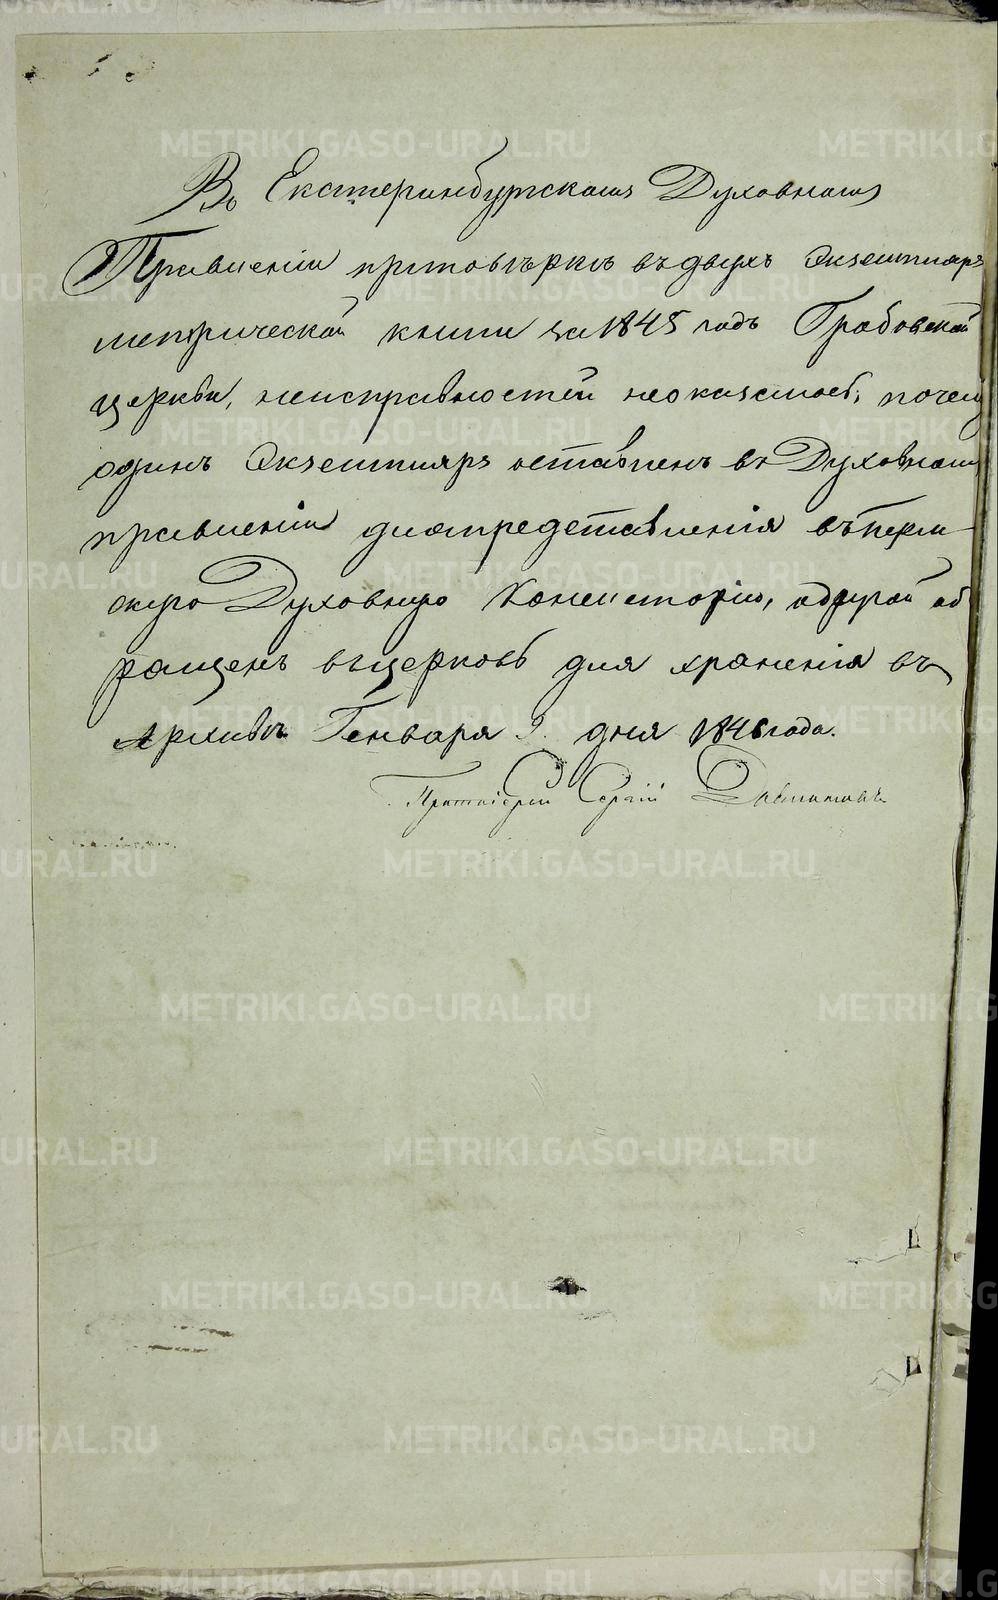 Въ Екатеринбургскомъ Духовномъ
Правленіи приповѣркѣ въдвухъ Экземпляр
метрической книги за 1845 годъ Грабовской
церкви, неисправностей неоказалось; почему
одинъ Экземпляръ оставленъ въ Духовномъ
правленіи дляпредставленія въперм-
скую Духовную Консисторію, адругой об
ращенъ вцерковь для храненія въ
Архивѣ. Генваря 9. дня 1846 года.
Протоіерей Сергій
METRIKI.GASO-URAL.RU